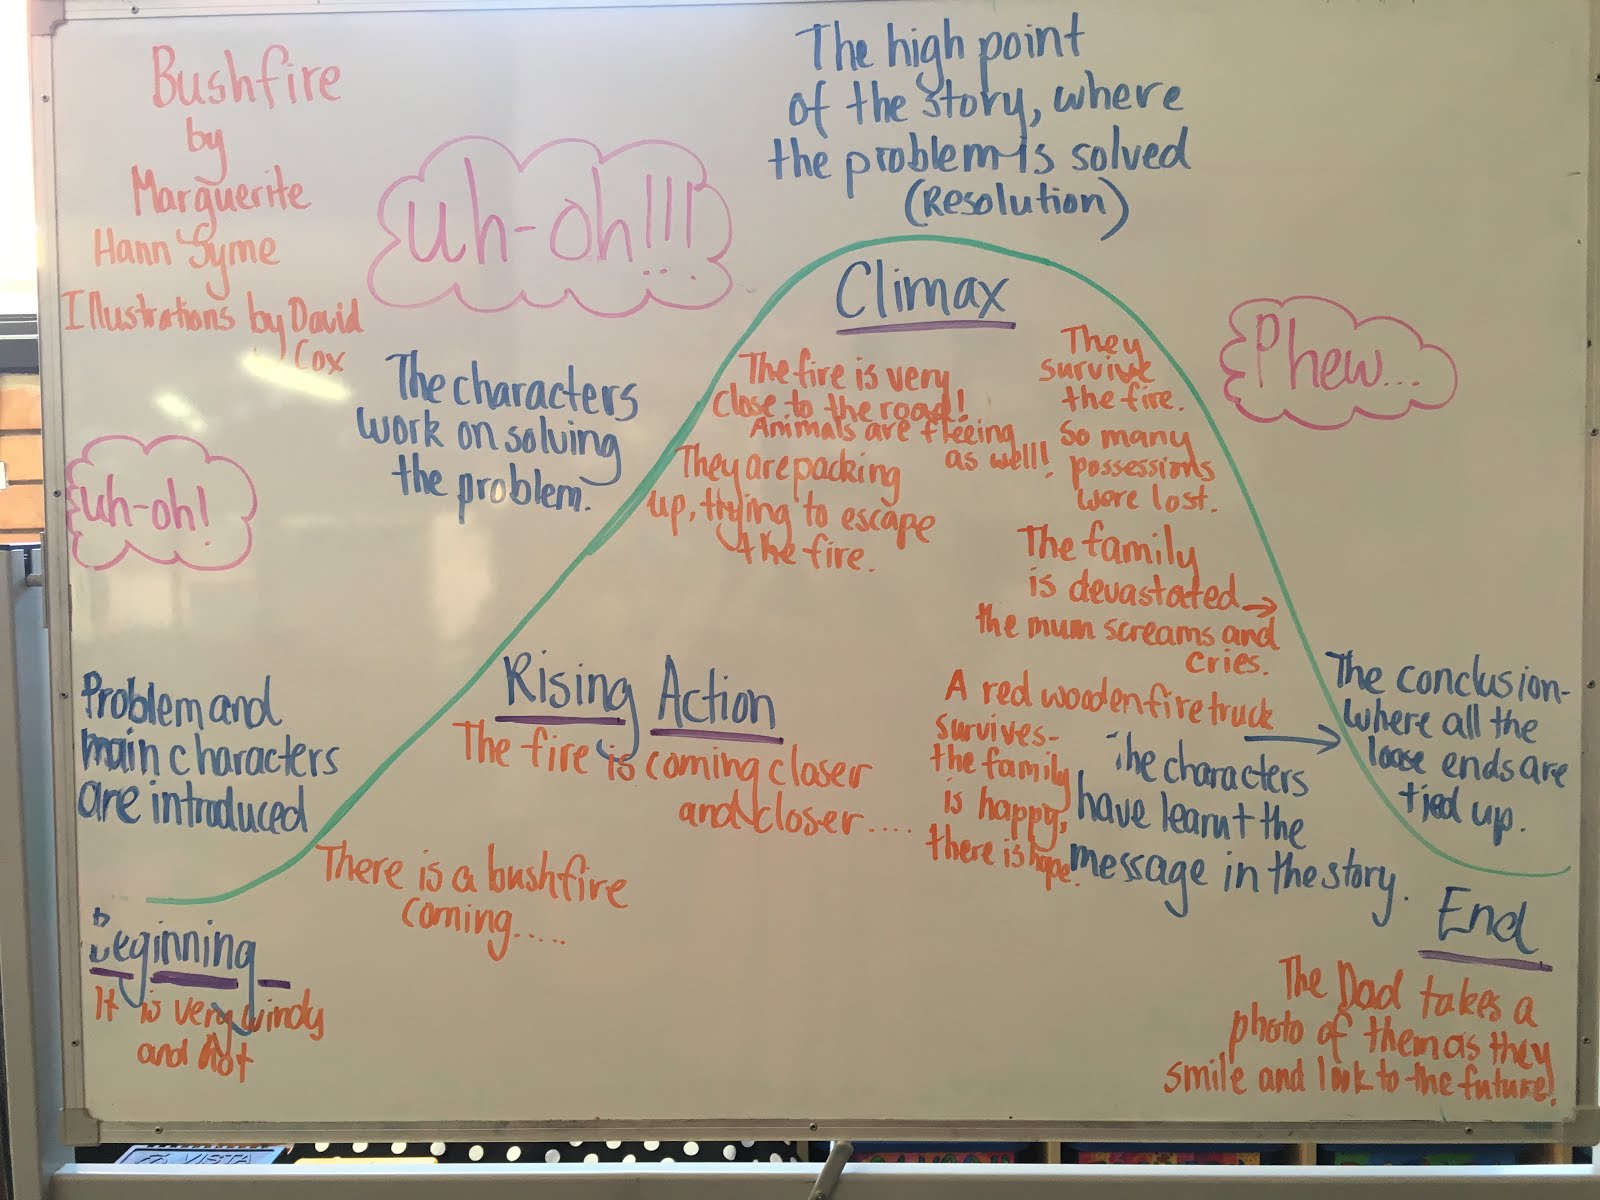 Bushfire
by
Marguerite
Hann Syme
Illustrations by David
Cox
uh-oh!!!
...
The high point
of the story, where
the problem is solved
(Resolution)
Climax
Phew...
The characters
work on solving
the problem.
uh-oh!
The fire is very
close to the road!
Animals are fleeing
as well!
They are packing
up, trying to escape
the fire.
They
survive
the fire.
So many
possessions
were lost.
The family
is devastated →
the mum screams and
cries.
Problem and
main characters
are introduced
Rising Action
The fire is coming closer
and closer....
A red wooden fire truck
survives-
the family
is happy,
there is hope.
The characters
have learnt the
message in the story.
The conclusion-
where all the
loose ends are
tied up.
There is a bushfire
coming.....
Beginning
It is very windy
and hot
End
The Dad takes a
photo of them as they
smile and look to the future!
FX VISTA